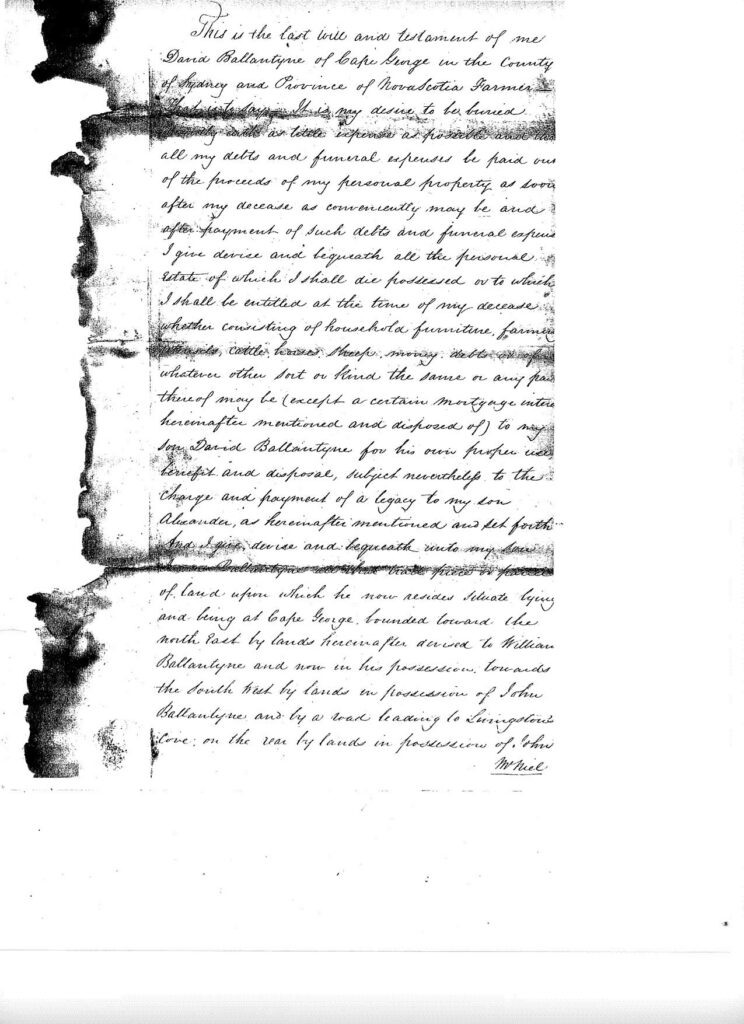 This is the last will and testament of me
David Ballantyne of Cape George in the County
of Sydney and Province of NovaScotia Farmer —
That is to say — It is my desire to be buried
with as little expense as possible and
all my debts and funeral expenses be paid out
of the proceeds of my personal property as soon
after my decease as conveniently may be and
after payment of such debts and funeral expens
I give devise and bequeath all the personal
Estate of which I shall die possessed or to which
I shall be entitled at the time of my decease
whether consisting of household furniture, farming
utensils, cattle horses sheep money debts or of
whatever other sort or kind the same or any part
thereof may be (except a certain mortgage intere
hereinafter mentioned and disposed of) to my
son David Ballantyne for his own proper use
benefit and disposal, subject nevertheless to the
charge and payment of a legacy to my son
Alexander, as hereinafter mentioned and set forth
And I give, devise and bequeath unto my son
Ballantyne all that piece or parcel
of land upon which he now resides situate lying
and being at Cape George, bounded toward the
north East by lands hereinafter devised to William
Ballantyne and now in his possession, towards
the South West by lands in possession of John
Ballantyne and by a road leading to Livingstons
Cove, on the rear by lands in possession of John
McNiel